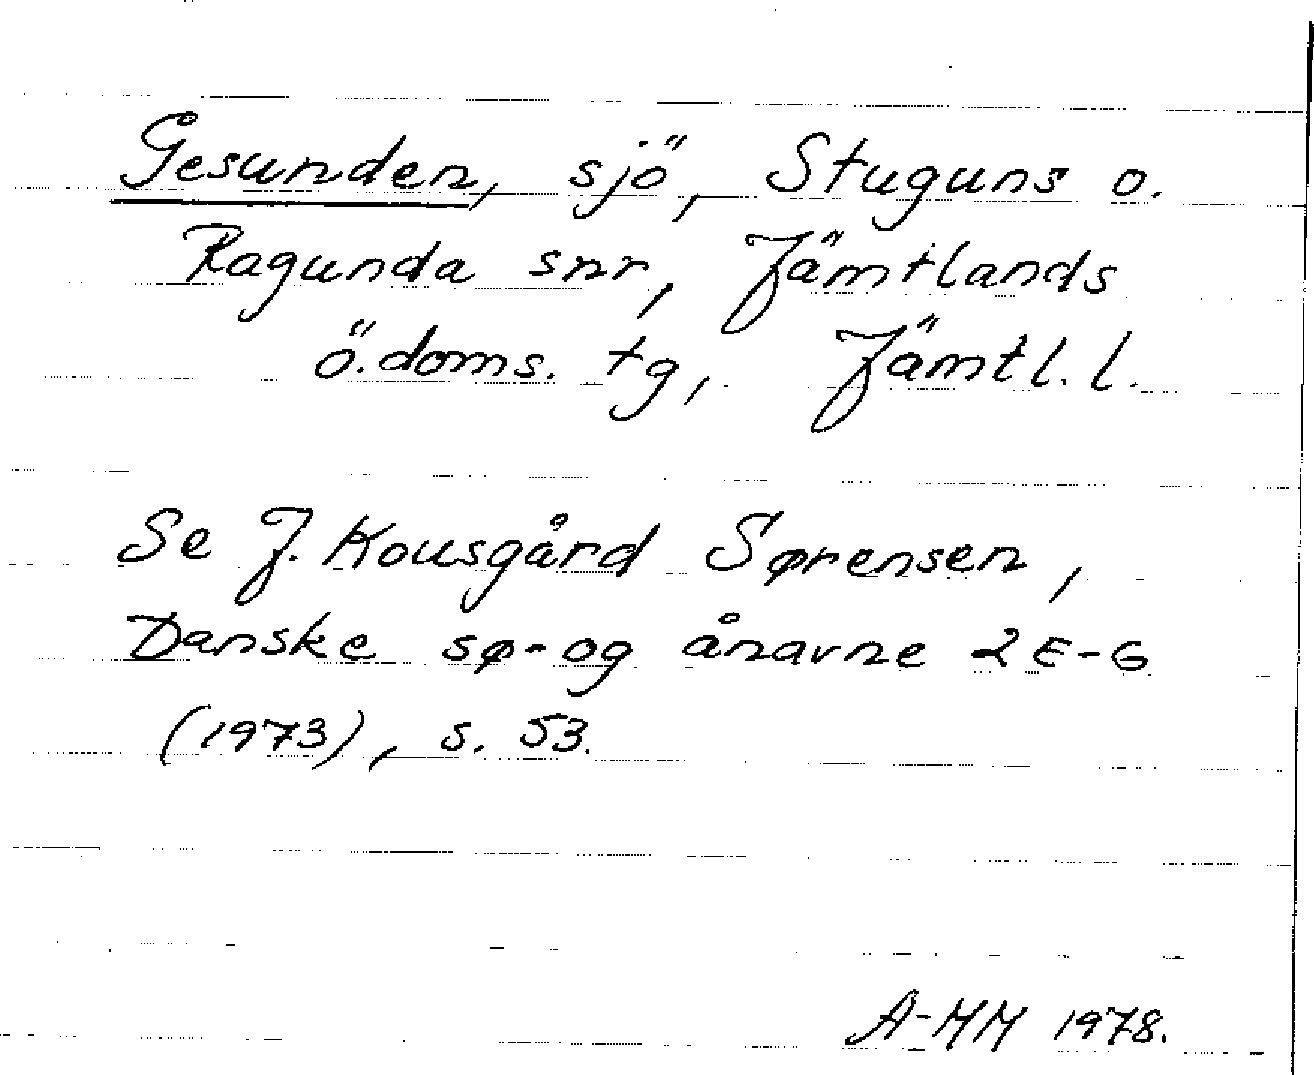 Gesunden, sjö, Stuguns o.
Ragunda snr, Jämtlands
ö. doms. tg, Jämtl. l.
Se J. Kousgård Sørensen,
Danske sø- og ånavne 2 E-G
(1973), s. 53.
A-MM 1978.